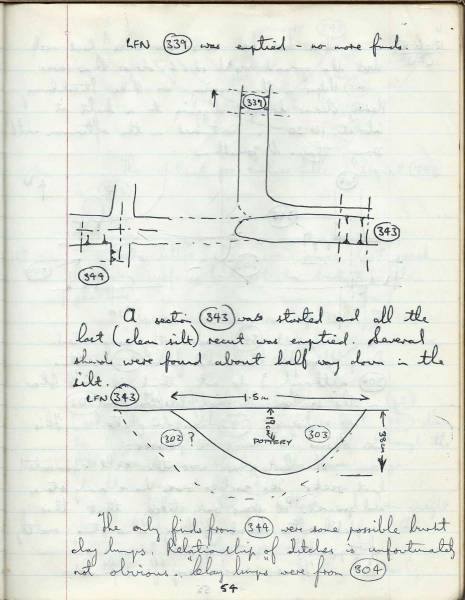 LFN 339 was emptied - no more finds.
339
343
344
A section 343 was started and all the
last (clean silt) recut was emptied. Several
sherds were found about half way down in the
silt.
LFN 343
1.5m
302 ?
19cm
POTTERY
303
38cm
The only finds from 344 were some possible burnt
clay lumps. Relationship of ditches is unfortunately
not obvious. "Clay lumps" were from 304
54